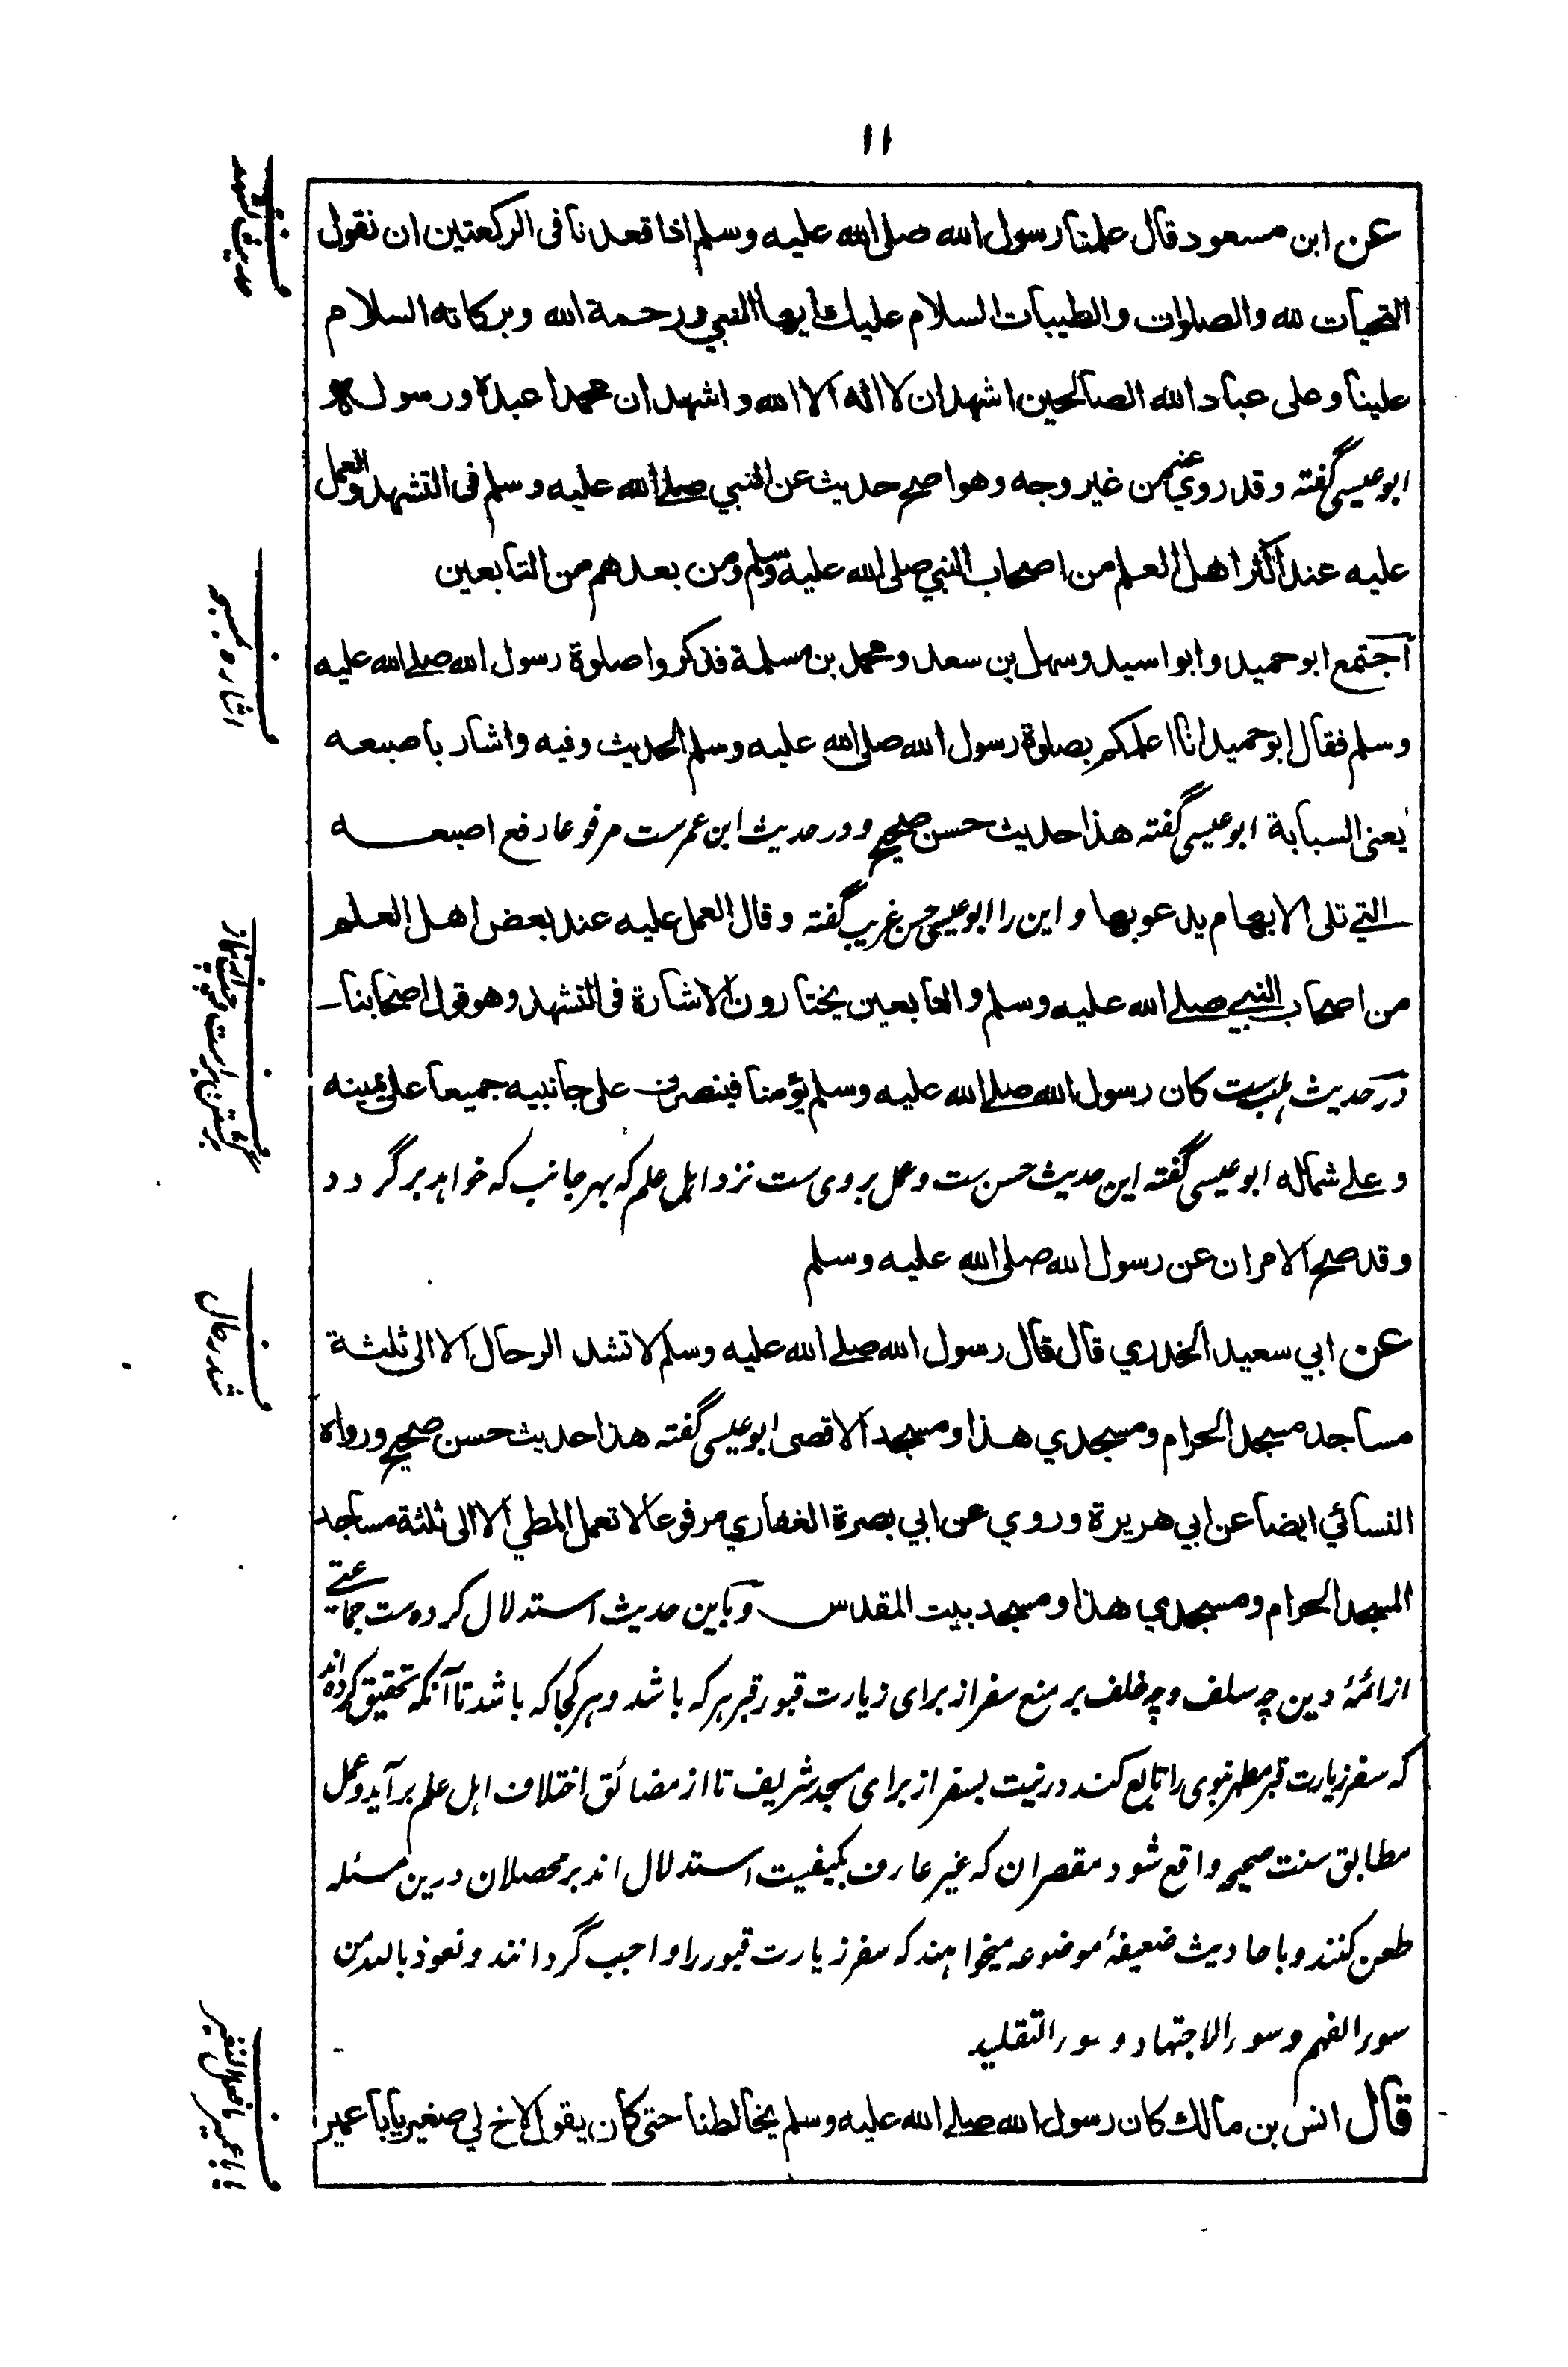 ۱۱
عن ابن مسعود قال علمنا رسول الله صلى الله عليه وسلم اذا قعدنا فى الركعتين ان نقول
التحيات لله والصلوات والطيبات السلام عليك ايها النبي ورحمة الله وبركاته السلام
علينا وعلى عباد الله الصالحين اشهد ان لا اله الا الله واشهد ان محمدا عبده ورسوله
ابو عیسی گفته وقد روي عنه من غير وجه وهو اصح حديث عن النبي صلى الله عليه وسلم فى التشهد والعمل
عليه عند اكثر اهل العلم من اصحاب النبي صلى الله عليه وسلم ومن بعدهم من التابعين
اجتمع ابو حميد وابو اسيد وسهل بن سعد ومحمد بن مسلمة فذكروا صلوة رسول الله صلى الله عليه
وسلم فقال ابو حميد انا اعلمكم بصلوة رسول الله صلى الله عليه وسلم الحديث وفيه واشار باصبعه
يعنى السبابة ابو عیسی گفته هذا حديث حسن صحيح ودر حدیث ابن عمرست مرفوعا رفع اصبعه
التي تلى الابهام يدعو بها واین را ابو عیسی حسن غریب گفته وقال العمل عليه عند بعض اهل العلم
من اصحاب النبي صلى الله عليه وسلم والتابعين يختارون الاشارة فى التشهد وهو قول اصحابنا
در حدیث هلب ست كان رسول الله صلى الله عليه وسلم يؤمنا فينصرف على جانبيه جميعا على يمينه
وعلى شماله ابو عیسی گفته این حدیث حسن ست وعمل بر وی ست نزد اهل علم که بهر جانب که خواهد برگردد
وقد صح الامران عن رسول الله صلى الله عليه وسلم
عن ابي سعيد الخدري قال قال رسول الله صلى الله عليه وسلم لا تشد الرحال الا الى ثلثة
مساجد مسجد الحرام ومسجدي هذا ومسجد الاقصى ابو عیسی گفته هذا حديث حسن صحيح ورواه
النسائي ايضا عن ابي هريرة وروي عن ابي بصرة الغفاري مرفوعا لا تعمل المطي الا الى ثلثة مساجد
المسجد الحرام ومسجدي هذا ومسجد بيت المقدس وباین حدیث استدلال کرده ست جماعتے
از ائمۂ دین چه سلف وچه خلف بر منع سفر از برای زیارت قبور قبر هر که باشد وهر کجا که باشد تا آنکه تحقیق کرده اند
که سفر زیارت قبر مطهر نبوی را تابع کند در نیت بسفر از برای مسجد شریف تا از مضائق اختلاف اهل علم برآید وعمل
مطابق سنت صحیحه واقع شود مقصران که غیر عارف بکیفیت استدلال اند بر محصلان درین مسئله
طعن کنند وباحادیث ضعیفۂ موضوعه میخواهند که سفر زیارت قبور را واجب گردانند ونعوذ بالله من
سوء الفهم وسوء الاجتهاد وسوء التقليد
قال انس بن مالك كان رسول الله صلى الله عليه وسلم يخالطنا حتى كان يقول لاخ لي صغير يابا عمير
ف
اشاره مسبحه
ف
ف
شد رحال
ف
یابا عمیر ما فعل النغیر